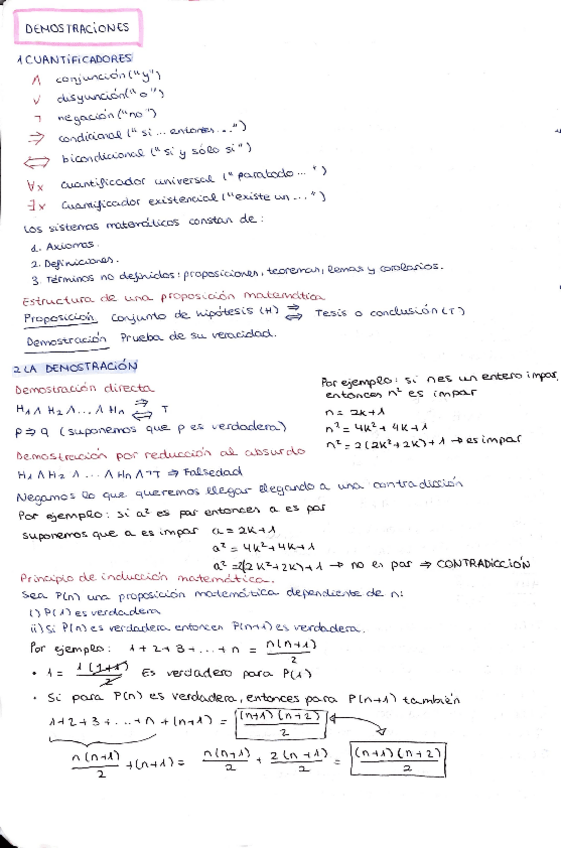 DEMOSTRACIONES
1 CUANTIFICADORES
∧ conjunción ("y")
∨ disyunción ("o")
¬ negación ("no")
⇒ condicional ("si ... entonces ...")
⇔ bicondicional ("si y sólo si")
∀x cuantificador universal ("para todo ...")
∃x cuantificador existencial ("existe un ...")
Los sistemas matemáticos constan de:
1. Axiomas.
2. Definiciones.
3. Términos no definidos: proposiciones, teoremas, lemas y corolarios.
Estructura de una proposición matemática
Proposición Conjunto de hipótesis (H) ⇒ ⇔ Tesis o conclusión (T)
Demostración Prueba de su veracidad.
2 LA DEMOSTRACIÓN
Demostración directa
H1 ∧ H2 ∧ ... ∧ Hn ⇒ ⇔ T
p ⇒ q (suponemos que p es verdadera)
Por ejemplo: si n es un entero impar,
entonces n² es impar
n = 2k+1
n² = 4k² + 4k + 1
n² = 2(2k²+2k)+1 → es impar
Demostración por reducción al absurdo
H1 ∧ H2 ∧ ... ∧ Hn ∧ ¬T ⇒ Falsedad
Negamos lo que queremos llegar llegando a una contradicción
Por ejemplo: si a² es par entonces a es par
suponemos que a es impar a = 2k+1
a² = 4k²+4k+1
a² = 2(2k²+2k)+1 → no es par ⇒ CONTRADICCIÓN
Principio de inducción matemática.
Sea P(n) una proposición matemática dependiente de n:
i) P(1) es verdadera
ii) Si P(n) es verdadera entonces P(n+1) es verdadera.
Por ejemplo: 1+2+3+...+n = n(n+1)/2
• 1 = 1(1+1)/2 Es verdadero para P(1)
• Si para P(n) es verdadera, entonces para P(n+1) también
1+2+3+...+n+(n+1) = (n+1)(n+2)/2
n(n+1)/2 + (n+1) = n(n+1)/2 + 2(n+1)/2 = (n+1)(n+2)/2